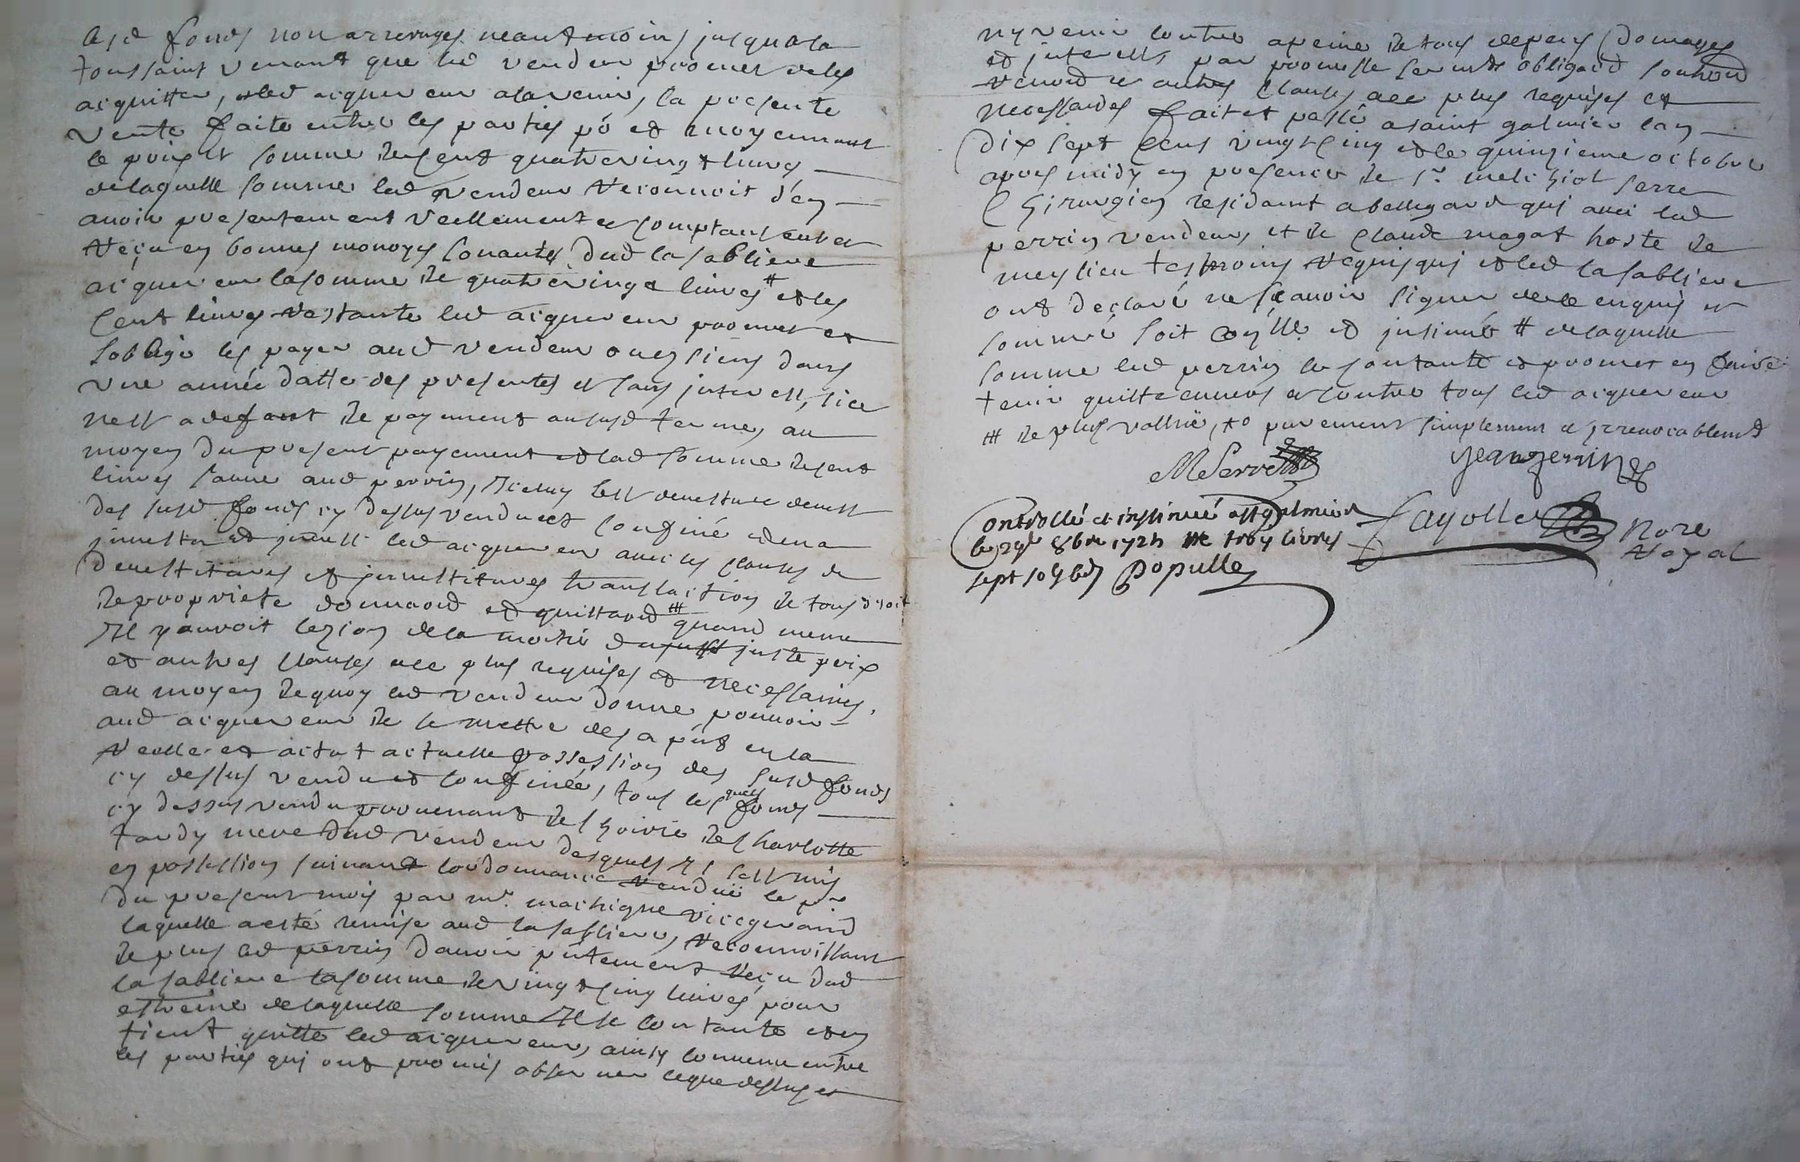 fonds non arrerages neantmoins jusqua la
toussaint venant que led vendeur promet de les
acquitter, et led acquereur a lavenir, la presente
vente faite entre les parties pō et moyennant
le prix et somme de cent quatrevingt livres
de laquelle somme led vendeur reconnoit den
avoir presentement reellement et comptant eu et
reçu en bonnes monoyes sonantes dud la sabliere
acquereur la somme de quatrevingt livres # et les
cent livres restante led acquereur promet et
soblige les payer aud vendeur ou es siens dans
une année datte des presentes et sans interest, si ce
nest a defaut de payement au susd terme, au
moyen du present payement et lad somme de cent
livres sauve aud perrin, Iceluy sest devestu et devest
des susd fonds cy dessus vendu et confiné et en a
investu et investi led acquereur avec les clauses de
devestitures et investitures translation de tous droit
de proprieté donnaōn et quittaōn ⧻ quand meme
Il y auroit lezion de la moitié du juste prix
et autres clauses a ce plus requises et necessaires,
au moyen de quoy led vendeur donne pouvoir
aud acquereur de se mettre des a pñt en la
reelle et actuelle possession des susd fonds
cy dessus vendu et confinés, tous lesquels fonds
cy dessus vendu provenant de lhoirie de Charlotte
tardy mere dud vendeur desquels Il sest mis
en possession suivant lordonnance rendue le pr
du present mois par mr. machigne vicegerand
laquelle a esté remise aud la sabliere, reconnoissant
de plus led perrin davoir pñtement reçu dud
la sabliere la somme de vingt cinq livres pour
estreine de laquelle somme Il se contante et en
tient quitte led acquereur, ainsy convenu entre
les parties qui ont promis observer ce que dessus et
ny venir contre a peine de tous depens domages
et interests par promesse serment obligaōn soumōn
renonōn et autres clauses a ce plus requises et
necessaires fait et passé a saint galmier lan
dix sept cens vingt cinq et le quinzieme octobre
apres midy en presence de sr. melchiol serre
Chirurgien residant a bellegarde qui avec led
perrin vendeur, et de Claude magat hoste de
meylieu tesmoins requis qui et led la sabliere
ont declaré ne sçavoir signer de ce enquis et
sommé soit cōllé. et insinué # de laquelle
somme led perrin se contante et promet en faire
tenir quitte envers et contre tous led acquereur
⧻ de plus vallüe, et purement simplement et irrevocablement
M Serre
Jean perrin
Controllé et insinué a St galmier
le 29e 8bre 1725 troy livres
sept sols 6d Populle
fayolle Nore
Royal